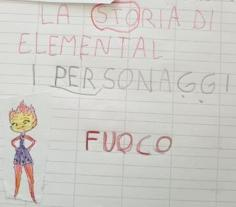 LA STORIA DI
ELEMENTAL
I PERSONAGGI
FUOCO